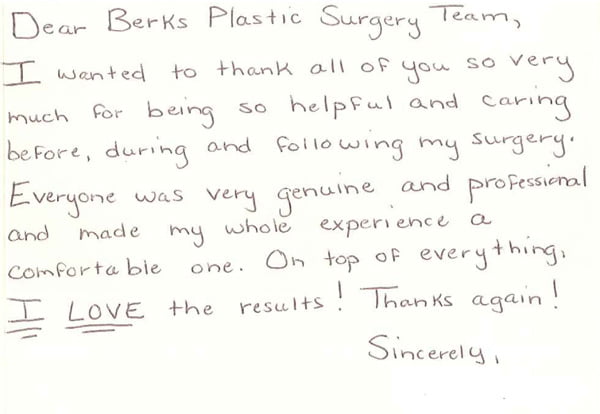 Dear Berks Plastic Surgery Team,
I wanted to thank all of you so very
much for being so helpful and caring
before, during and following my surgery.
Everyone was very genuine and professional
and made my whole experience a
comfortable one. On top of everything,
I LOVE the results! Thanks again!
Sincerely,